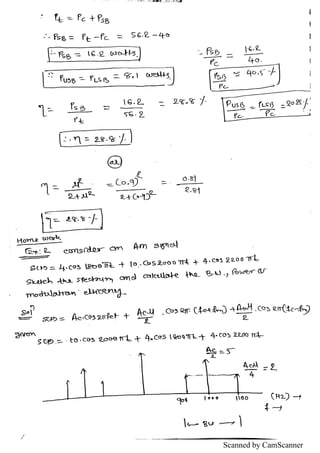 ∵ Pt = Pc + PSB
∴ PSB = Pt - Pc = 56.2 - 40
∴ PSB = 16.2 watts
∴ PSB/Pc = 16.2/40
PSB/Pc ≈ 40.5 %
∵ PUSB = PLSB = 8.1 watts
PUSB/Pc = PLSB/Pc = 20.25%
η = PSB/Pt = 16.2/56.2 = 28.8 %
∴ η = 28.8 %
(or)
η = μ²/(2+μ²) = (0.9)²/(2+(0.9)²) = 0.81/2.81
η = 28.8 %
Home work
Ex: 2 consider an Am signal
S(t) = 4.cos 1800πt + 10.cos 2000πt + 4.cos 2200πt
Sketch the spectrum and calculate the B.W., Power &
modulation efficiency.
Sol
S(t) = Ac.cos2πfct + Ac.μ/2 .cos 2π(fc+fm) + Ac.μ/2 .cos 2π(fc-fm)
given
S(t) = 10.cos 2000πt + 4.cos 1800πt + 4.cos 2200πt
Ac/2 = 5
Ac.μ/4 = 2
900 1000 1100 (Hz) →
f →
|← BW →|
Scanned by CamScanner